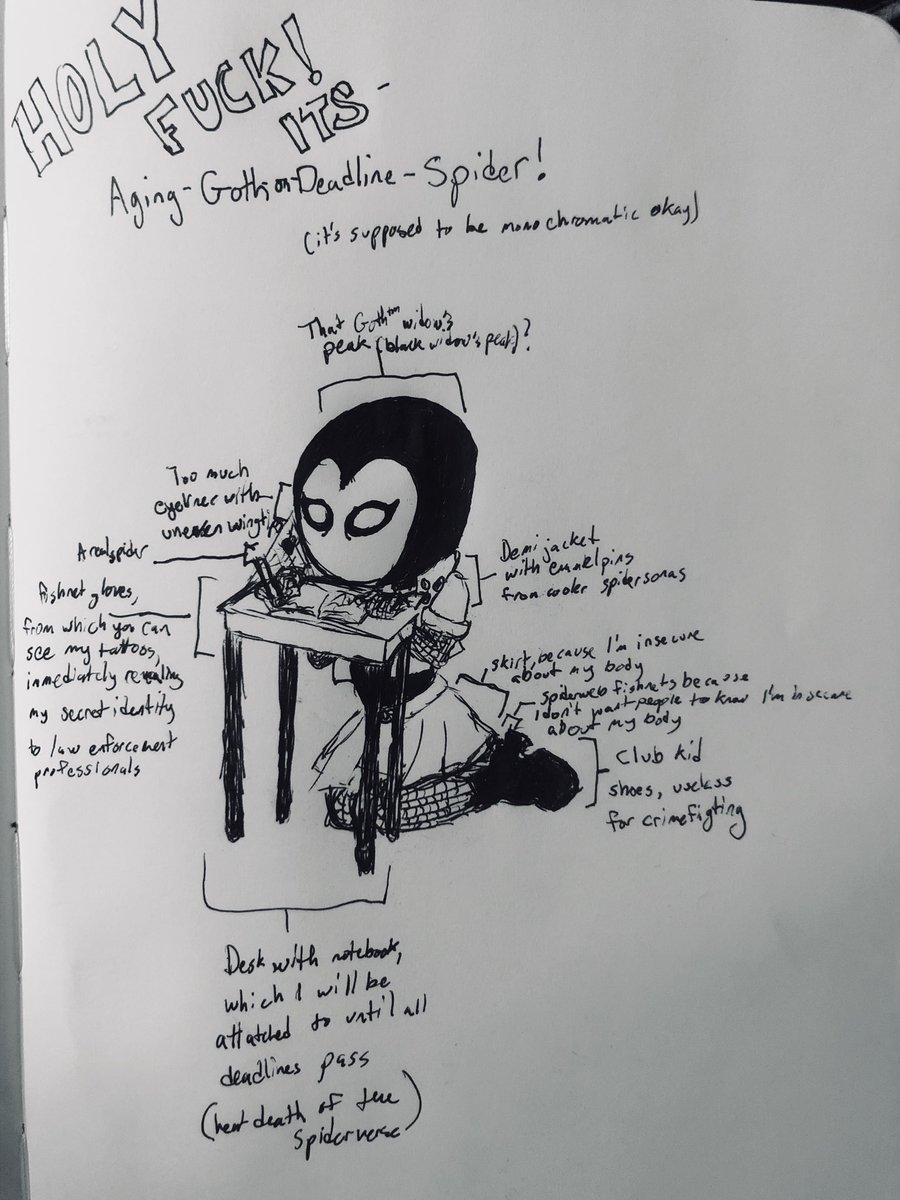 HOLY
FUCK!
ITS-
Aging-Goth on-Deadline-Spider!
(it's supposed to be monochromatic okay)
That Goth™ widow's
peak (black widow's peak)?
Too much
eyeliner with
uneven wingti
A real spider
fishnet gloves,
from which you can
see my tattoos,
immediately revealing
my secret identity
to law enforcement
professionals
Demi jacket
with enamel pins
from cooler spidersonas
skirt, because I'm insecure
about my body
spiderweb fishnets because
I don't want people to know I'm insecure
about my body
Club kid
shoes, useless
for crimefigting
Desk with notebook,
which I will be
attatched to until all
deadlines pass
(heat death of the
spiderverse)